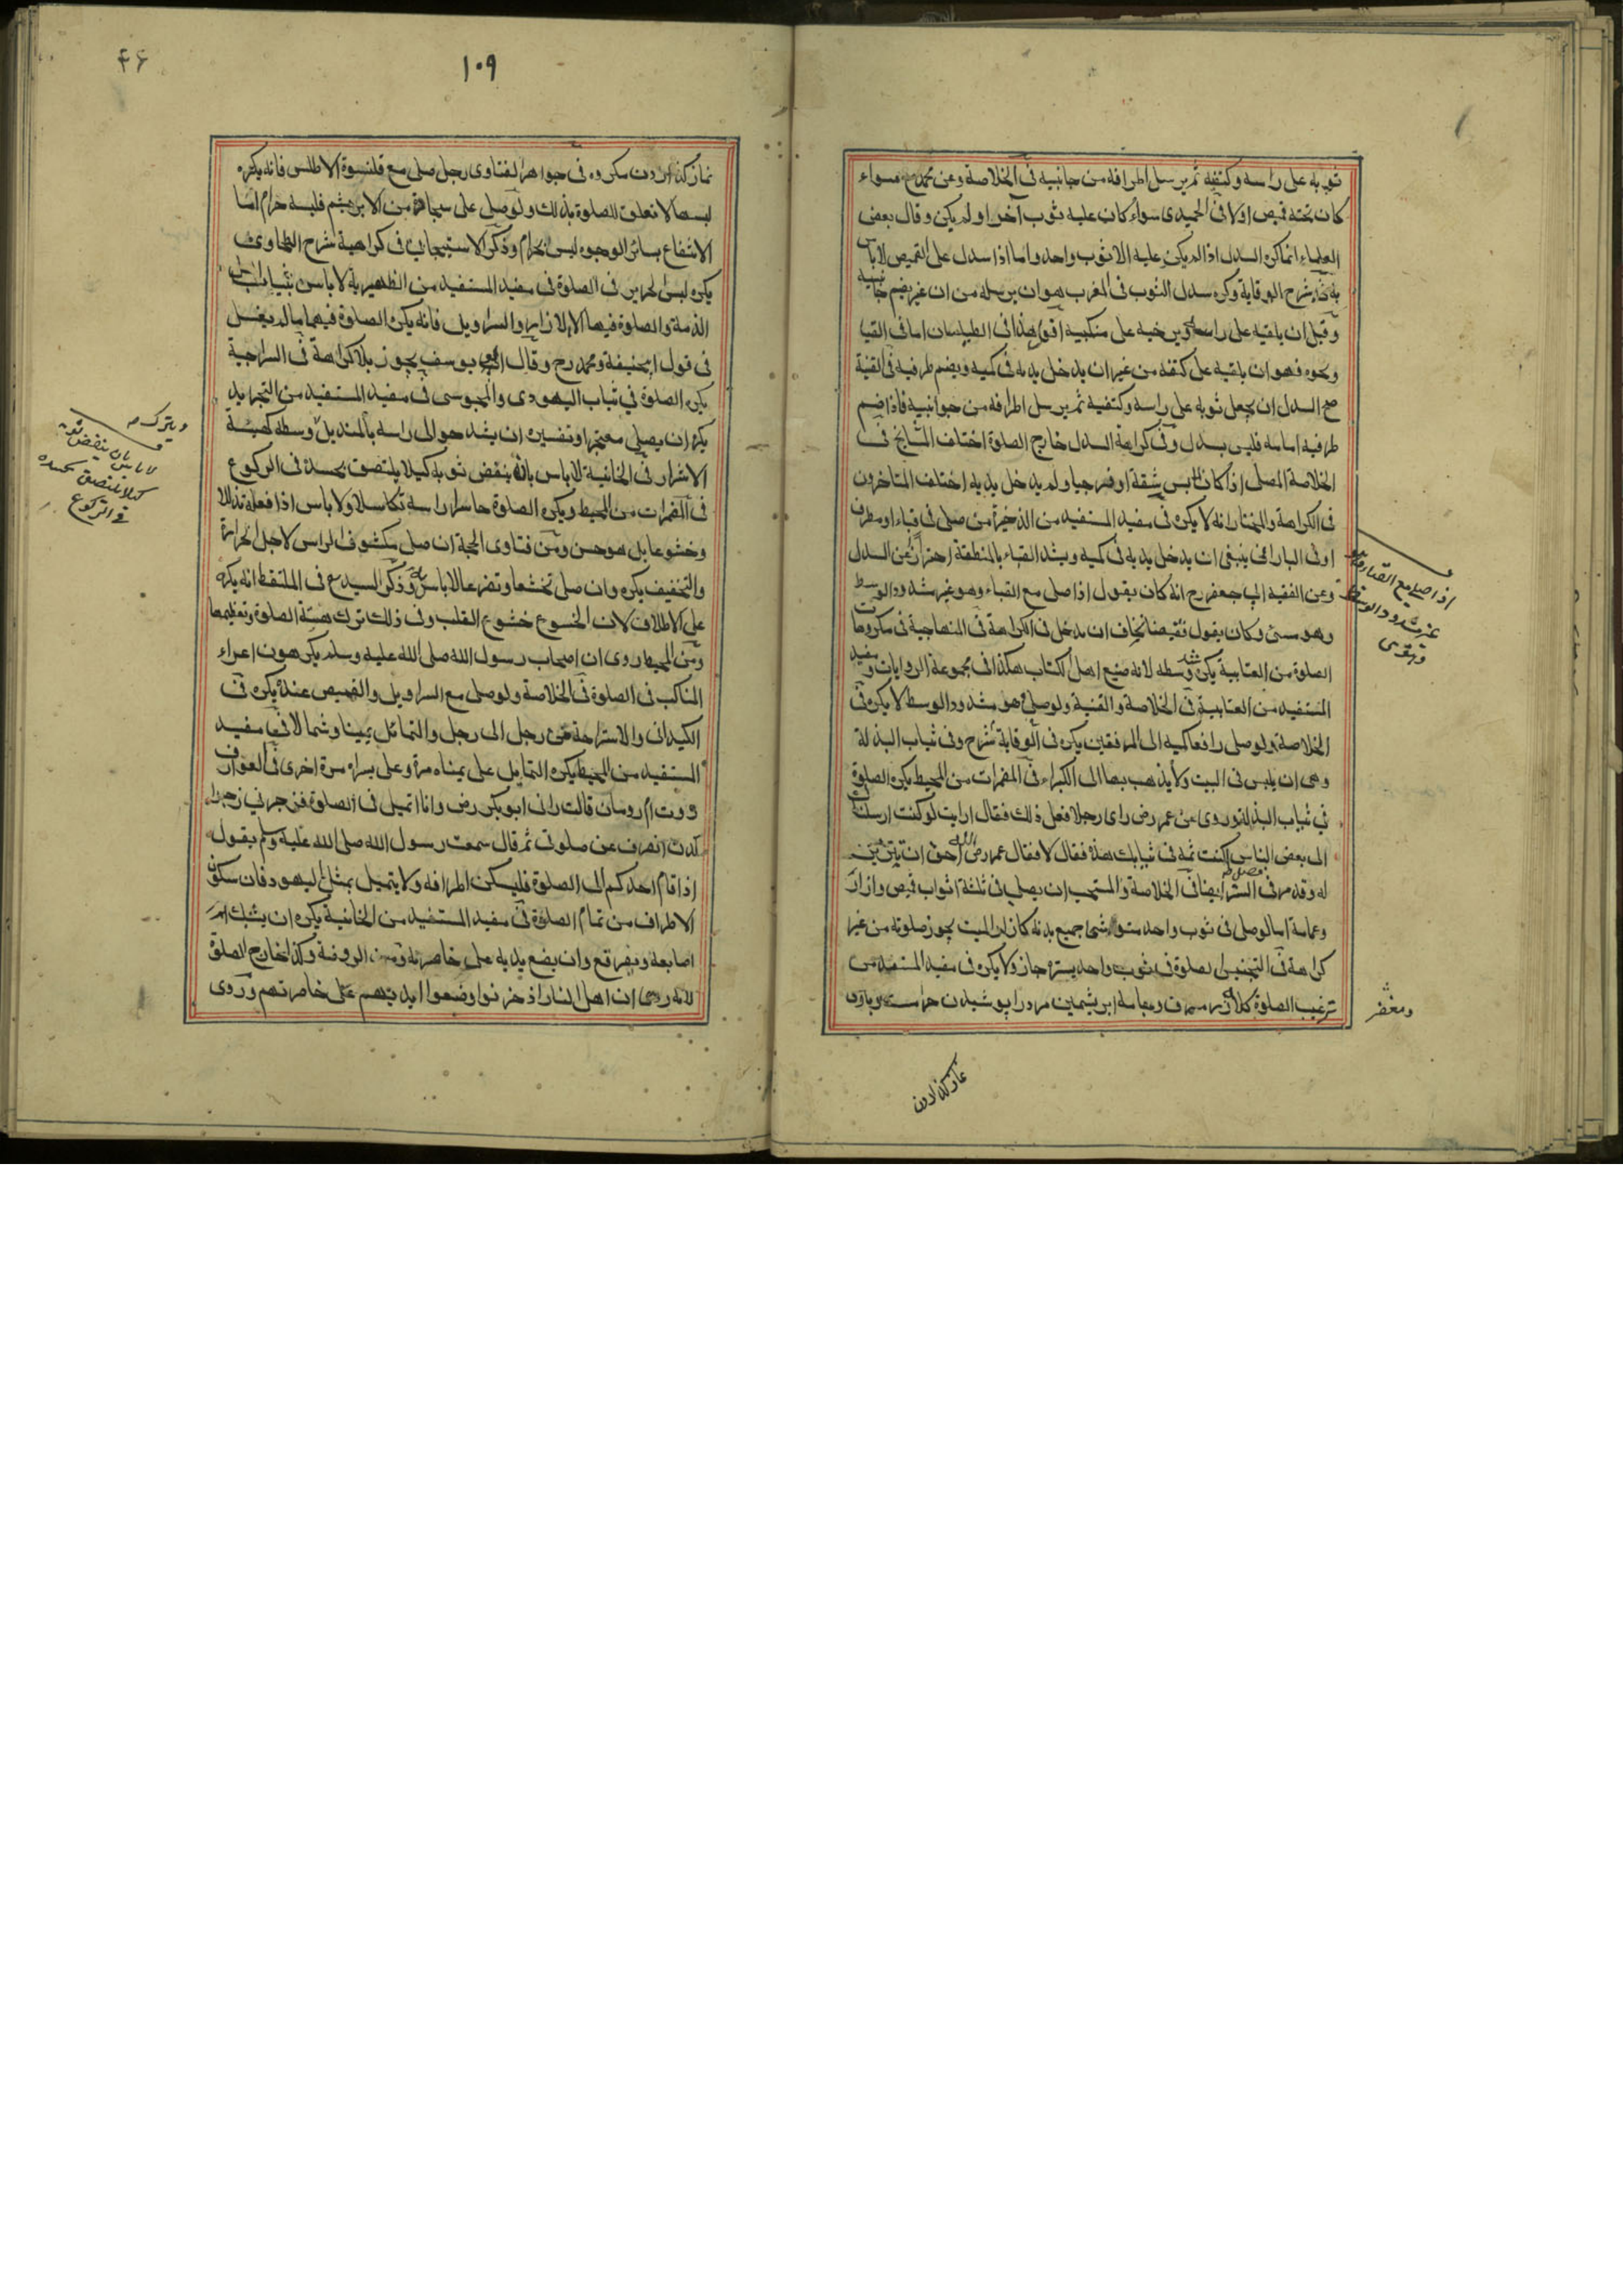 ثوبه على راسه وكتفيه ثم يرسل اطرافه من جانبيه فى الخلاصة وعن محمد رح سواء
كان تحته قميص اولا فى الحميدى سواء كان عليه ثوب آخر او لم يكن وقال بعض
العلماء انما كره السدل اذا لم يكن عليه الا ثوب واحد واما اذا سدل على القميص لا باس
به فى شرح الوقاية وكره سدل الثوب فى المغرب هو ان يرسله من غير ان يضم جانبيه
وقيل ان يلقيه على راسه ويرخيه على منكبيه اقول هذا فى الطيلسان اما فى القبا
ونحوه فهو ان يلقيه على كتفه من غير ان يدخل يديه فى كميه ويضم طرفيه فى القنية
صح السدل ان يجعل ثوبه على راسه وكتفيه ثم يرسل اطرافه من جوانبيه فاذا ضم
طرفيه امامه فليس بسدل وفى كراهة السدل خارج الصلوة اختلف المشايخ فى
الخلاصة المصلى اذا كان لابس شقة او فرجيا ولم يدخل يديه اختلف المتاخرون
فى الكراهة والمختار انه لا يكره فى مفيد المستفيد من الذخيرة من صلى فى قباء او مطرف
او فى البارانى ينبغى ان يدخل يديه فى كميه ويشد القباء بالمنطقة احترازا عن السدل
وعن الفقيه ابى جعفر رح انه كان يقول اذا صلى مع القباء وهو غير مشدود الوسط
وهو مسىء وكان يقول نقيضا يخاف ان يدخل فى الكراهة فى المنهاجية فى مكروها
الصلوة من العتابية يكره شد وسطه لانه صنيع اهل الكتاب هكذا فى مجموعة الروايات ومفيد
المستفيد من العتابية فى الخلاصة والقنية ولو صلى وهو مشدود الوسط لا يكره فى
الخلاصة ولو صلى رافعا كميه الى المرفقين يكره فى الوقاية شرح وفى ثياب البذلة
وهى ان يلبس فى البيت ولا يذهب بها الى الكبراء فى المضمرات من المحيط يكره الصلوة
فى ثياب البذلة وروى عن عمر رض راى رجلا فعل ذلك فقال ارايت لو كنت ارسلتك
الى بعض الناس اكنت تمر فى ثيابك هذه فقال لا فقال عمر رض الله احق ان تتزين
له وقد مر فى فصل الستر ايضا فى الخلاصة والمستحب ان يصلى فى ثلثة اثواب قميص وازار
وعمامة اما لو صلى فى ثوب واحد متوشحا جميع بدنه كازار الميت يجوز صلوته من غير
كراهة فى التجنيس الصلوة فى ثوب واحد يستره جاز ولا يكره فى مفيد المستفيد من
ترغيب الصلوة كلاه زر مصرف وجامه ابريشمين مرد را پوشيدن حرامست و باوى
اذا صلى مع القباء وهو
غير مشدود الوسط
ومغفر
نماز كذاردن
نماز كذاردن مكروه فى جواهر الفتاوى رجل صلى مع قلنسوة الاطلس فانه يكره
لبسها لا تعلق للصلوة بذلك ولو صلى على سجادة من الابريشم فلبسه حرام اما
الانتفاع بسائر الوجوه ليس بحرام وذكر الاستيجابى فى كراهية شرح الطحاوى
يكره لبس الحرير فى الصلوة فى مفيد المستفيد من الظهيرية لا باس بثياب اهل
الذمة والصلوة فيها الا الازار والسراويل فانه يكره الصلوة فيهما ما لم يغسل
فى قول ابى حنيفة ومحمد رح وقال ابو يوسف يجوز بلا كراهة فى السراجية
يكره الصلوة فى ثياب اليهودى والمجوسى فى مفيد المستفيد من التجريد
يكره ان يصلى معتجرا وتفسيره ان يشد حوالى راسه بالمنديل وسطه كهيئة
الاشرار فى الخانية لا باس بانه ينفض ثوبه كيلا يلتصق بجسده فى الركوع
فى المضمرات من المحيط ويكره الصلوة حاسرا راسه تكاسلا ولا باس اذا فعله تذللا
وخشوعا بل هو حسن ومن فتاوى الحجة ان صلى مكشوف الراس لاجل الحرارة
والتخفيف يكره وان صلى تخشعا وتضرعا لا باس به وذكر السيد مع فى الملتقط انه يكره
على الاطلاق لان الخشوع خشوع القلب وفى ذلك ترك هيئة الصلوة وتعظيمها
ومن المحيط روى ان اصحاب رسول الله صلى الله عليه وسلم يكرهون اعراء
المناكب فى الصلوة فى الخلاصة ولو صلى مع السراويل والقميص عنده يكره فى
الكيدانى والاستراحة من رجل الى رجل والتمائل يمينا وشمالا فى مفيد
المستفيد من المحيط يكره التمايل على يمناه مرة وعلى يسراه مرة اخرى فى العوارف
روت ام رومان قالت رانى ابو بكر رض وانا اتميل فى الصلوة فزجرنى زجرا
كدت انصرف عن صلوتى ثم قال سمعت رسول الله صلى الله عليه وسلم يقول
اذا قام احدكم الى الصلوة فليسكن اطرافه ولا يتميل تميل اليهود فان سكون
الاطراف من تمام الصلوة فى مفيد المستفيد من الخانية يكره ان يشبك
اصابعه ويفرقع وان يضع يديه على خاصرته ومن الروضة وكذا خارج الصلوة
لانه روى ان اهل النار اذا حزنوا وضعوا ايديهم على خاصرتهم وروى
ويترك
لا باس بان ينفض ثوبه
كيلا يلتصق بجسده
فى الركوع
١٠٩